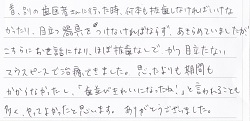 昔、別の歯医者さんに行った時、何本も抜歯しなければいけな
かったり、目立つ器具をつけなければならず、あきらめていましたが
こちらにお世話になり、ほぼ抜歯なしで、かつ目立たない
マウスピースで治療できました。思ったよりも期間も
かからなかったし、「歯並びきれいになったね!」と言われることも
多く、やってよかったと思います。ありがとうございました。